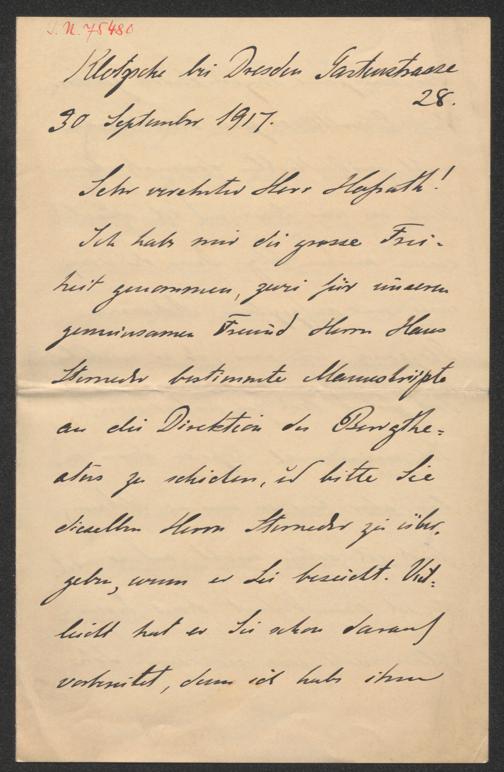 I.N. 75480
Klotzsche bei Dresden Gartenstrasse
28.
30 September 1917.
Sehr verehrter Herr Hofrath!
Ich habe mir die grosse Frei-
heit genommen, zwei für unseren
gemeinsamen Freund Herrn Hans
Sterneder bestimmte Manuskripte
an die Direktion des Burgthe-
aters zu schicken, und bitte Sie
dieselben Herrn Sterneder zu über-
geben, wenn er Sie besucht. Viel-
leicht hat er Sie schon darauf
vorbereitet, denn ich habe ihm